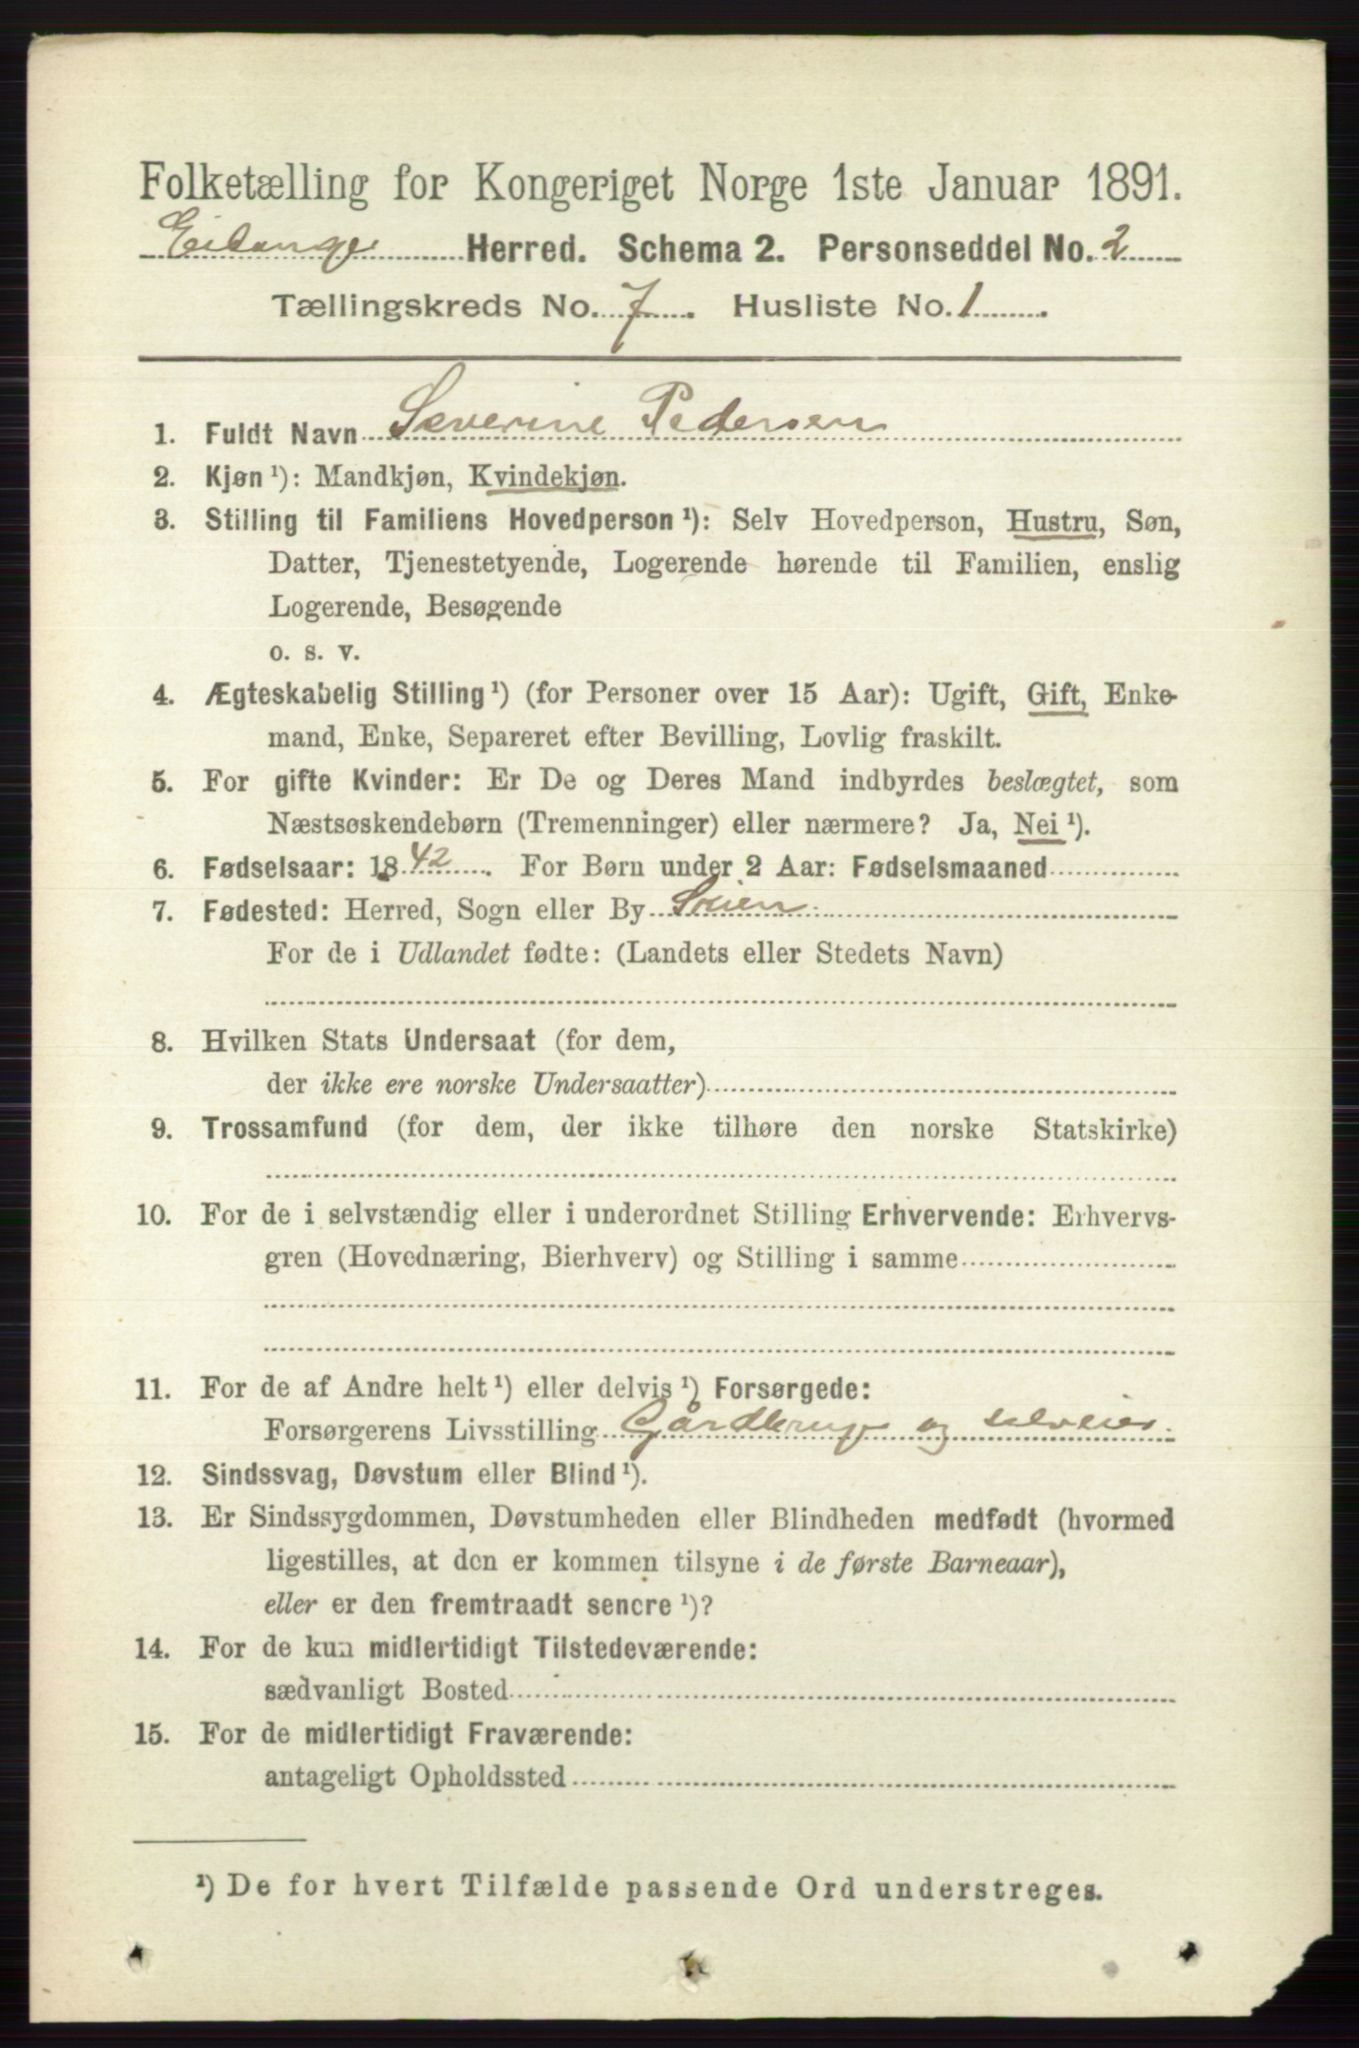 Folketælling for Kongeriget Norge 1ste Januar 1891.
Eidanger Herred. Schema 2. Personseddel No. 2
Tællingskreds No. 7. Husliste No. 1.
1. Fuldt Navn Severine Pedersen
2. Kjøn ¹): Mandkjøn, Kvindekjøn.
3. Stilling til Familiens Hovedperson ¹): Selv Hovedperson, Hustru, Søn,
Datter, Tjenestetyende, Logerende hørende til Familien, enslig
Logerende, Besøgende
o. s. v.
4. Ægteskabelig Stilling ¹) (for Personer over 15 Aar): Ugift, Gift, Enke-
mand, Enke, Separeret efter Bevilling, Lovlig fraskilt.
5. For gifte Kvinder: Er De og Deres Mand indbyrdes beslægtet, som
Næstsøskendebørn (Tremenninger) eller nærmere? Ja, Nei ¹).
6. Fødselsaar: 1842. For Børn under 2 Aar: Fødselsmaaned
7. Fødested: Herred, Sogn eller By
For de i Udlandet fødte: (Landets eller Stedets Navn)
8. Hvilken Stats Undersaat (for dem,
der ikke ere norske Undersaatter)
9. Trossamfund (for dem, der ikke tilhøre den norske Statskirke)
10. For de i selvstændig eller i underordnet Stilling Erhvervende: Erhvervs-
gren (Hovednæring, Bierhverv) og Stilling i samme
11. For de af Andre helt ¹) eller delvis ¹) Forsørgede:
Forsørgerens Livsstilling Gårdbruger og selveier
12. Sindssvag, Døvstum eller Blind ¹).
13. Er Sindssygdommen, Døvstumheden eller Blindheden medfødt (hvormed
ligestilles, at den er kommen tilsyne i de første Barneaar),
eller er den fremtraadt senere ¹)?
14. For de kun midlertidigt Tilstedeværende:
sædvanligt Bosted
15. For de midlertidigt Fraværende:
antageligt Opholdssted
¹) De for hvert Tilfælde passende Ord understreges.